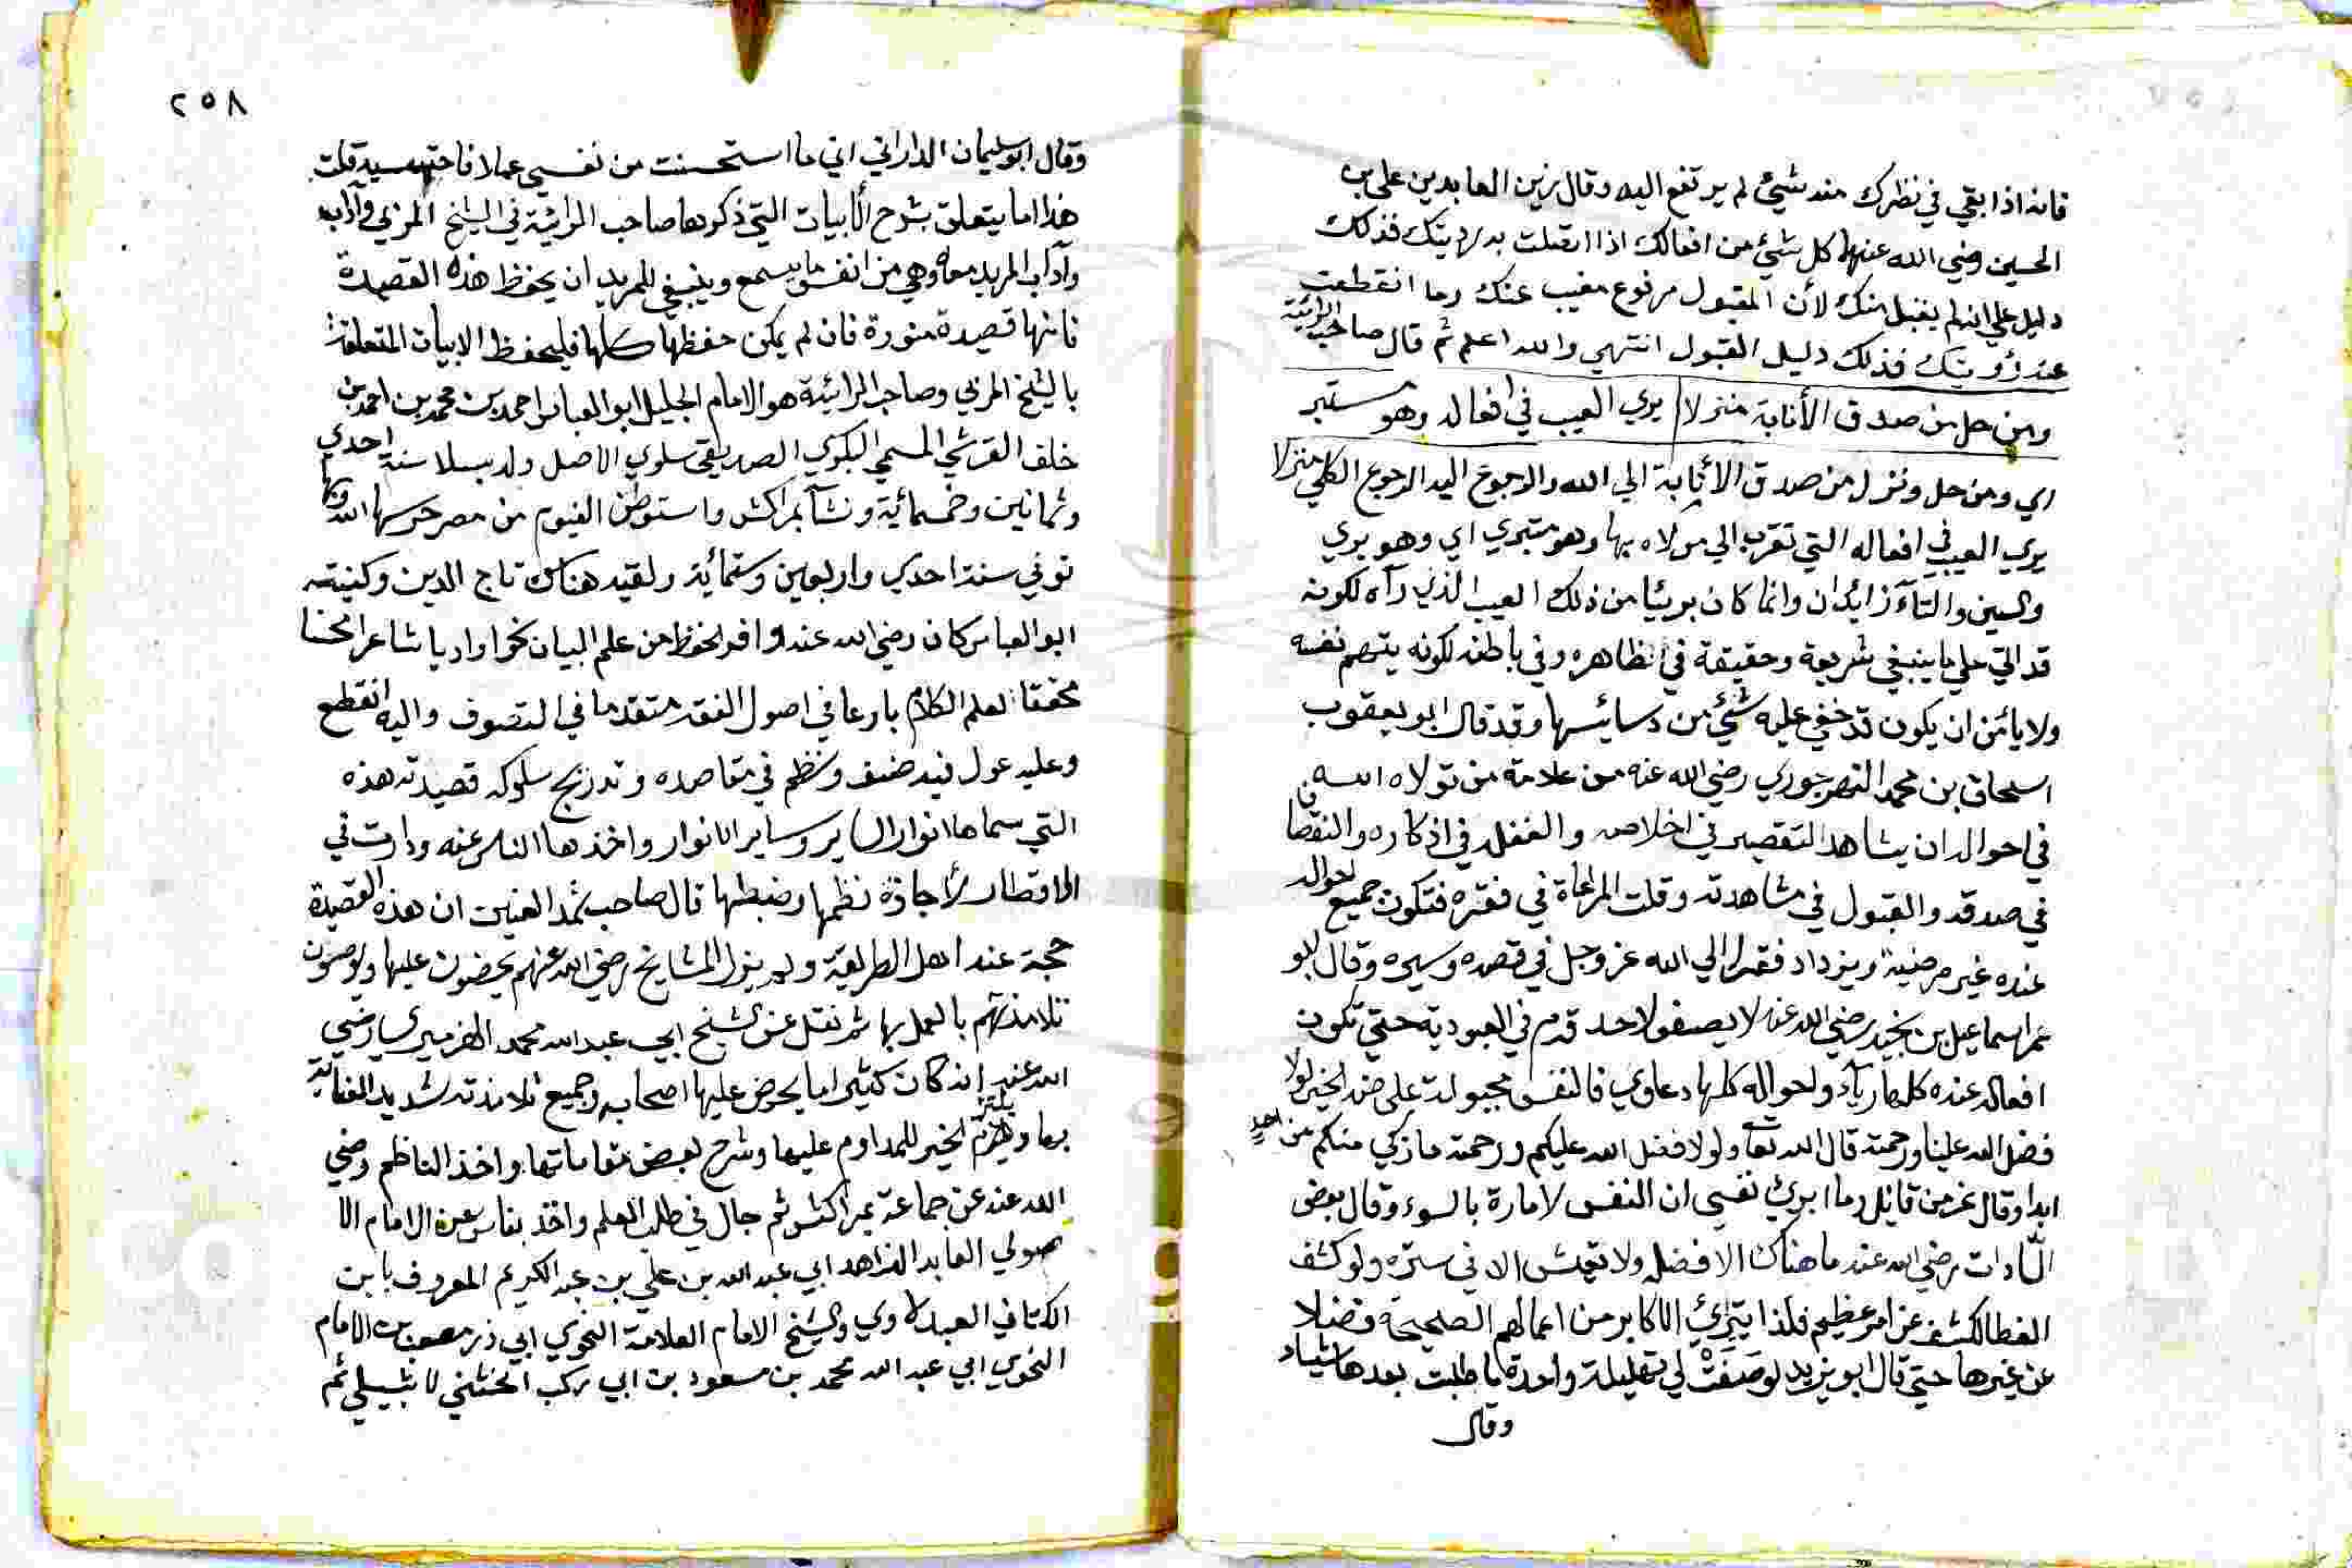 فانه اذا بقي في نظرك منه شيئ لم يرتفع اليه وقال زين العابدين علي بن
الحسين رضي الله عنهما كل شيئ من افعالك اذا اتصلت به رؤيتك فذلك
دليل علي انه لم يقبل منك لأن المقبول مرفوع مغيب عنك وما انقطعت
عنه رؤيتك فذلك دليل القبول انتهي والله اعلم ثم قال صاحب الرائية
ومن حل من صدق الأنابة منزلا يري العيب في افعاله وهو مستبر
اي ومن حل ونزل من صدق الأنابة الي الله والرجوع اليه الرجوع الكلي منزلا
يري العيب في افعاله التي تقرب الي مولاه بها وهو متبري اي وهو بري
والسين والتآء زايدان وانما كان بريئا من ذلك العيب الذي رآه لكونه
قد اتي علي ما ينبغي شريعة وحقيقة في ظاهره وفي باطنه لكونه يتهم نفسه
ولا يأمن ان يكون قد خفي عليه شيئ من دسائسها وقد قال ابو يعقوب
اسحاق بن محمد النهرجوري رضي الله عنه من علامة من تولاه الله
في احواله ان يشاهد التقصير في اخلاصه والغفلة في اذكاره والنقصان
في صدقه والقبول في مشاهدته وقلت المراعاة في فقره فتكون جميع احواله
عنده غير مرضية ويزداد فقرا الي الله عز وجل في قصده وسيره وقال ابو
عمر اسماعيل بن نجيد رضي الله عنه لا يصفو لاحد قدم في العبودية حتي تكون
افعاله عنده كلها ريآء واحواله كلها دعاوي فالنفس مجبولة علي ضد الخير لولا
فضل الله علينا ورحمته قال الله تعا ولولا فضل الله عليكم ورحمته ما زكي منكم من احد
ابدا وقال عز من قايل وما ابرئ نفسي ان النفس لامارة بالسوء وقال بعض
السادات رضي الله عنه ما هناك الا فضله ولا تعش الا في ستره ولو كشف
الغطا لكشف عن امر عظيم فلذا يتبرئ الاكابر من اعمالهم الصحيحة فضلا
عن غيرها حتي قال ابو يزيد لو صَفَتْ لي تهليلة واحدة ما طلبت بعدها شياء
وقال
٢٥٨
وقال ابو سليمان الداراني اني ما استحسنت من نفسي عملا فاحتسبه قلت
هذا ما يتعلق بشرح الأبيات التي ذكرها صاحب الرائية في الشيخ المربي وآدابه
وآداب المريد معه وهي من انفس ما يسمع وينبغي للمريد ان يحفظ هذه القصيدة
فانها قصيدة منورة فان لم يمكن حفظها كلها فليحفظ الابيات المتعلقة
بالشيخ المربي وصاحب الرائية هو الامام الجليل ابو العباس احمد بن محمد بن احمد بن
خلف القرشي المسمي البكري الصديقي سلوي الاصل ولد بسلا سنة احدي
وثمانين وخمسمائية ونشأ بمراكش واستوطن الفيوم من مصر حرسها الله وبها
توفي سنة احدي واربعين وستمائية ولقبه هناك تاج الدين وكنيته
ابو العباس كان رضي الله عنه وافر الحظ من علم البيان نحوا واديا شاعرا محسنا
محققا لعلم الكلام بارعا في اصول الفقه متقدما في التصوف واليه انقطع
وعليه عول فيه صنف ونظم في مقاصده وتدريج سلوكه قصيدته هذه
التي سماها انوار السراير وسراير الانوار واخذها الناس عنه ودارت في
الاقطار لأجادة نظمها وضبطها قال صاحب ثمد العينين ان هذه القصيدة
حجة عند اهل الطريقة ولم يزل المشايخ رضي الله عنهم يحضون عليها ويوصون
تلامذتهم بالعمل بها ثم نقل عن الشيخ ابي عبد الله محمد الهزميري رضي
الله عنه انه كان كثيرا ما يحرض عليها اصحابه وجميع تلامذته شديد العناية
بها ويلتزم الخير للمداوم عليها وشرح لبعض مقاماتها واخذ الناظم رضي
الله عنه عن جماعة بمراكش ثم جال في طلب العلم واخذ بفاس عن الامام الا
صولي العابد الزاهد ابي عبد الله بن علي بن عبد الكريم المعروف بابن
الكتاني العبدلاوي والشيخ الامام العلامة النحوي ابي ذر مصعب بن الامام
النحوي ابي عبد الله محمد بن مسعود بن ابي ركب الخشني لاشبيلي ثم